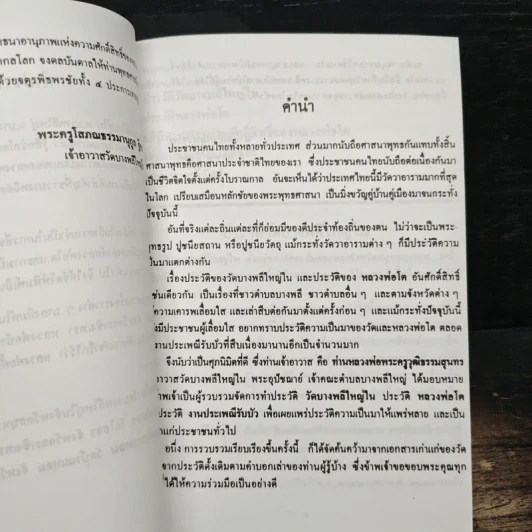 ธนาอานุภาพแห่งความศักดิ์สิทธิ์ของ
กลโลก จงดลบันดาลให้ท่านพุทธศาส
ด้วยจตุรพิธพรชัยทั้ง ๔ ประการ
พระครูโสภณธรรมานุกูล
เจ้าอาวาสวัดบางพลีใหญ่
คำนำ
ประชาชนคนไทยทั้งหลายทั่วประเทศ ส่วนมากนับถือศาสนาพุทธกันแทบทั้งสิ้น
ศาสนาพุทธคือศาสนาประจำชาติไทยของเรา ซึ่งประชาชนคนไทยนับถือต่อเนื่องกันมา
เป็นชีวิตจิตใจตั้งแต่ครั้งโบราณกาล อันจะเห็นได้ว่าประเทศไทยนี้มีวัดวาอารามมากที่สุด
ในโลก เปรียบเสมือนหลักชัยของพระพุทธศาสนา เป็นมิ่งขวัญคู่บ้านคู่เมืองมาจนกระทั่ง
ปัจจุบันนี้
อันที่จริงแต่ละถิ่นแต่ละที่ก็ย่อมมีของดีประจำท้องถิ่นของตน ไม่ว่าจะเป็นพระ-
พุทธรูป ปูชนียสถาน หรือปูชนียวัตถุ แม้กระทั่งวัดวาอารามต่าง ๆ ก็มีประวัติความ
เป็นมาแตกต่างกัน
เรื่องประวัติของวัดบางพลีใหญ่ใน และประวัติของ หลวงพ่อโต อันศักดิ์สิทธิ์
เช่นเดียวกัน เป็นเรื่องที่ชาวตำบลบางพลี ชาวตำบลอื่น ๆ และตามจังหวัดต่าง ๆ
ความเคารพเลื่อมใส และเล่าสืบต่อกันมาตั้งแต่ครั้งก่อน ๆ และแม้กระทั่งปัจจุบันนี้
ังมีประชาชนผู้เลื่อมใส อยากทราบประวัติความเป็นมาของวัดและหลวงพ่อโต ตลอด
งานประเพณีรับบัวที่สืบเนื่องมานานอีกเป็นจำนวนมาก
จึงนับว่าเป็นศุภนิมิตที่ดี ซึ่งท่านเจ้าอาวาส คือ ท่านหลวงพ่อพระครูวุฒิธรรมสุนทร
อาวาสวัดบางพลีใหญ่ใน พระอุปัชฌาย์ เจ้าคณะตำบลบางพลีใหญ่ ได้มอบหมาย
าพเจ้าเป็นผู้รวบรวมจัดการทำประวัติ วัดบางพลีใหญ่ใน ประวัติ หลวงพ่อโต
ประวัติ งานประเพณีรับบัว เพื่อเผยแพร่ประวัติความเป็นมาให้แพร่หลาย และเป็น
แก่ประชาชนทั่วไป
อนึ่ง การรวบรวมเรียบเรียงขึ้นครั้งนี้ ก็ได้จัดค้นคว้ามาจากเอกสารเก่าแก่ของวัด
จากประวัติดั้งเดิมตามคำบอกเล่าของท่านผู้รู้บ้าง ซึ่งข้าพเจ้าขอขอบพระคุณทุก
ได้ให้ความร่วมมือเป็นอย่างดี